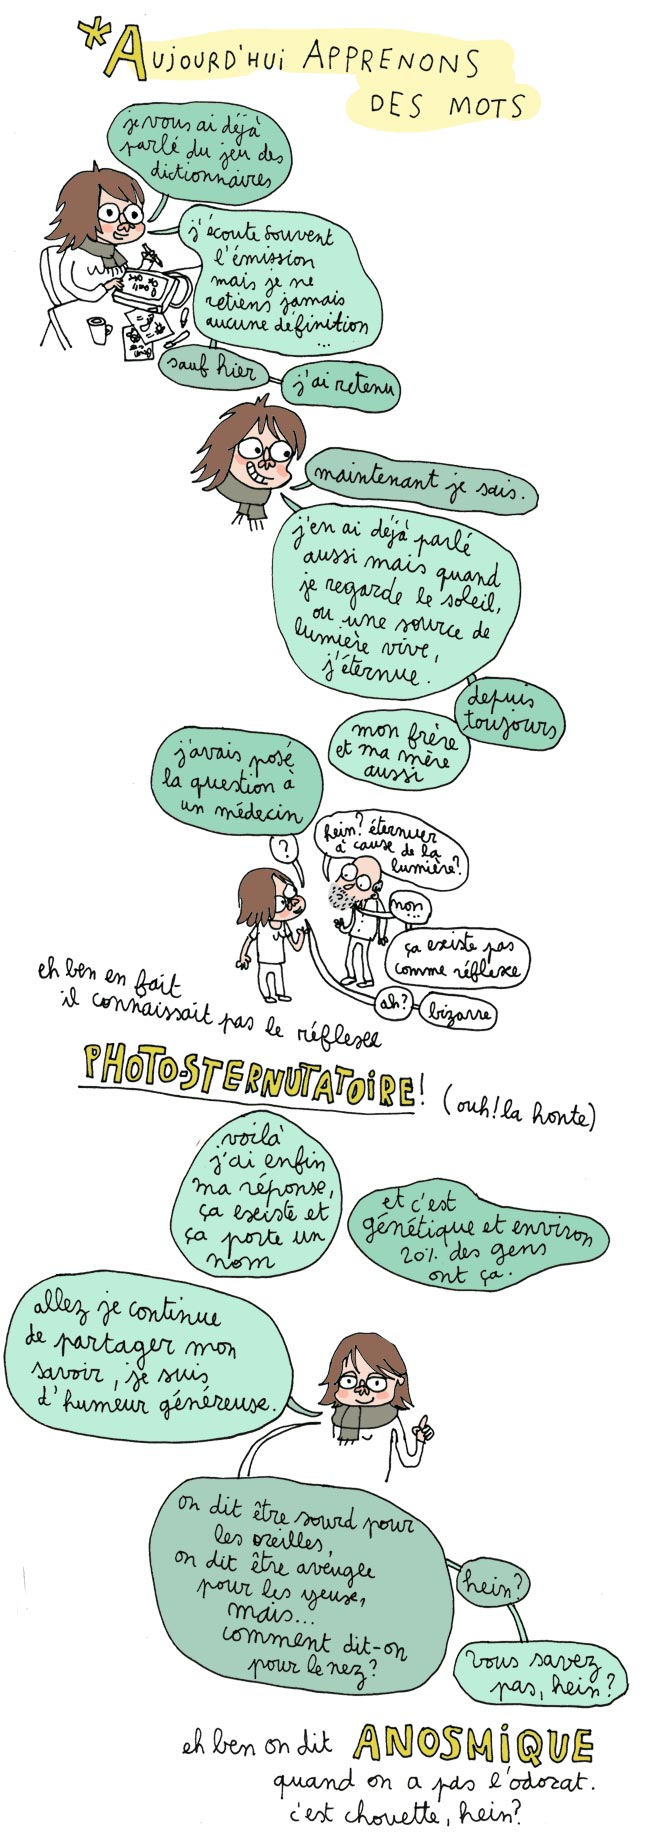 *Aujourd'hui APPRENONS
DES MOTS
je vous ai déjà
parlé du jeu des
dictionnaires
j'écoute souvent
l'émission
mais je ne
retiens jamais
aucune définition
...
sauf hier
j'ai retenu
maintenant je sais.
j'en ai déjà parlé
aussi mais quand
je regarde le soleil,
ou une source de
lumière vive,
j'éternue.
depuis
toujours
mon frère
et ma mère
aussi
j'avais posé
la question à
un médecin
?
hein? éternuer
à cause de la
lumière?
non...
ça existe pas
comme réflexe
ah?
bizarre
eh ben en fait
il connaissait pas le réflexe
PHOTO-STERNUTATOIRE! (ouh! la honte)
voilà
j'ai enfin
ma réponse,
ça existe et
ça porte un
nom
et c'est
génétique et environ
20% des gens
ont ça.
allez je continue
de partager mon
savoir, je suis
d'humeur généreuse.
on dit être sourd pour
les oreilles,
on dit être aveugle
pour les yeux,
mais...
comment dit-on
pour le nez?
hein?
vous savez
pas, hein?
eh ben on dit ANOSMiQUE
quand on a pas l'odorat.
c'est chouette, hein?